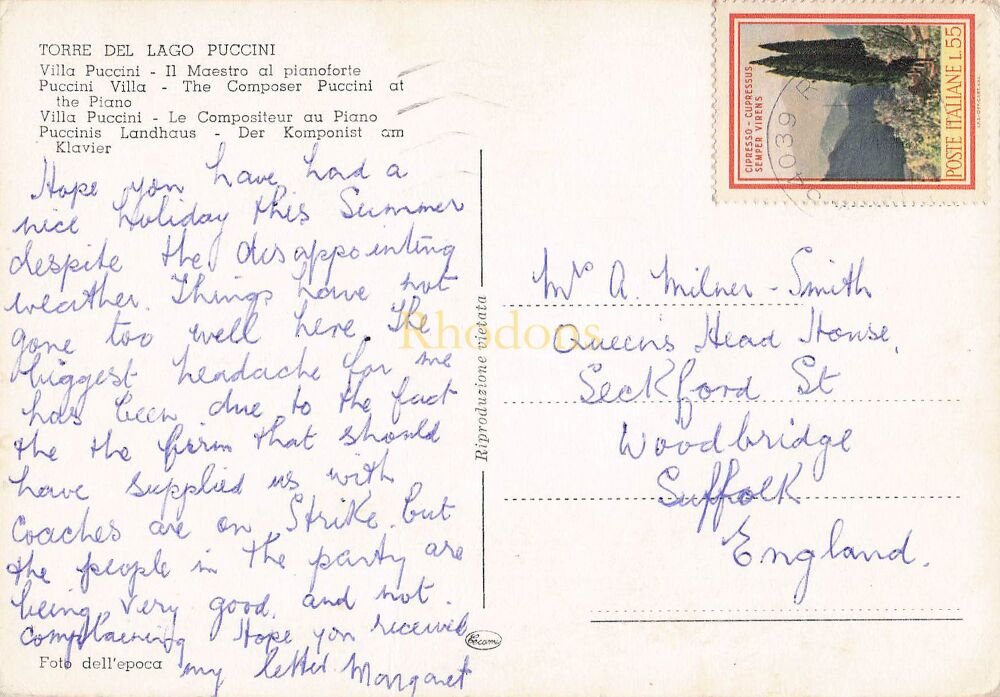 TORRE DEL LAGO PUCCINI
Villa Puccini - Il Maestro al pianoforte
Puccini Villa - The Composer Puccini at
the Piano
Villa Puccini - Le Compositeur au Piano
Puccinis Landhaus - Der Komponist am
Klavier
Hope you have had a
nice holiday this Summer
despite the disappointing
weather. Things have not
gone too well here. The
biggest headache for me
has been due to the fact
the the firm that should
have supplied us with
coaches are on Strike. but
the people in the party are
being very good and not
complaening Hope you received
my letter Margaret
Foto dell'epoca
Riproduzione vietata
Rhodoos
CIPRESSO - CUPRESSUS
SEMPER VIRENS
POSTE ITALIANE L.55
Mrs A. Milner-Smith
Queen's Head House,
Seckford St
Woodbridge
Suffolk
England.